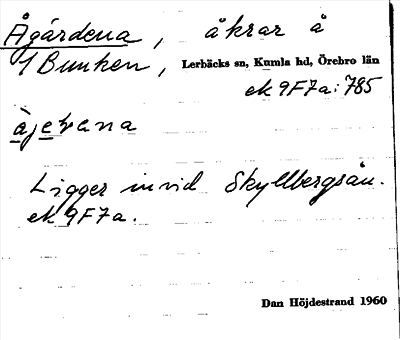 Ågärdena, åkrar å
1 Bunken, Lerbäcks sn, Kumla hd, Örebro län
ek 9F7a:785
àjeṛana
Ligger invid Skyllbergsån.
ek 9F7a.
Dan Höjdestrand 1960